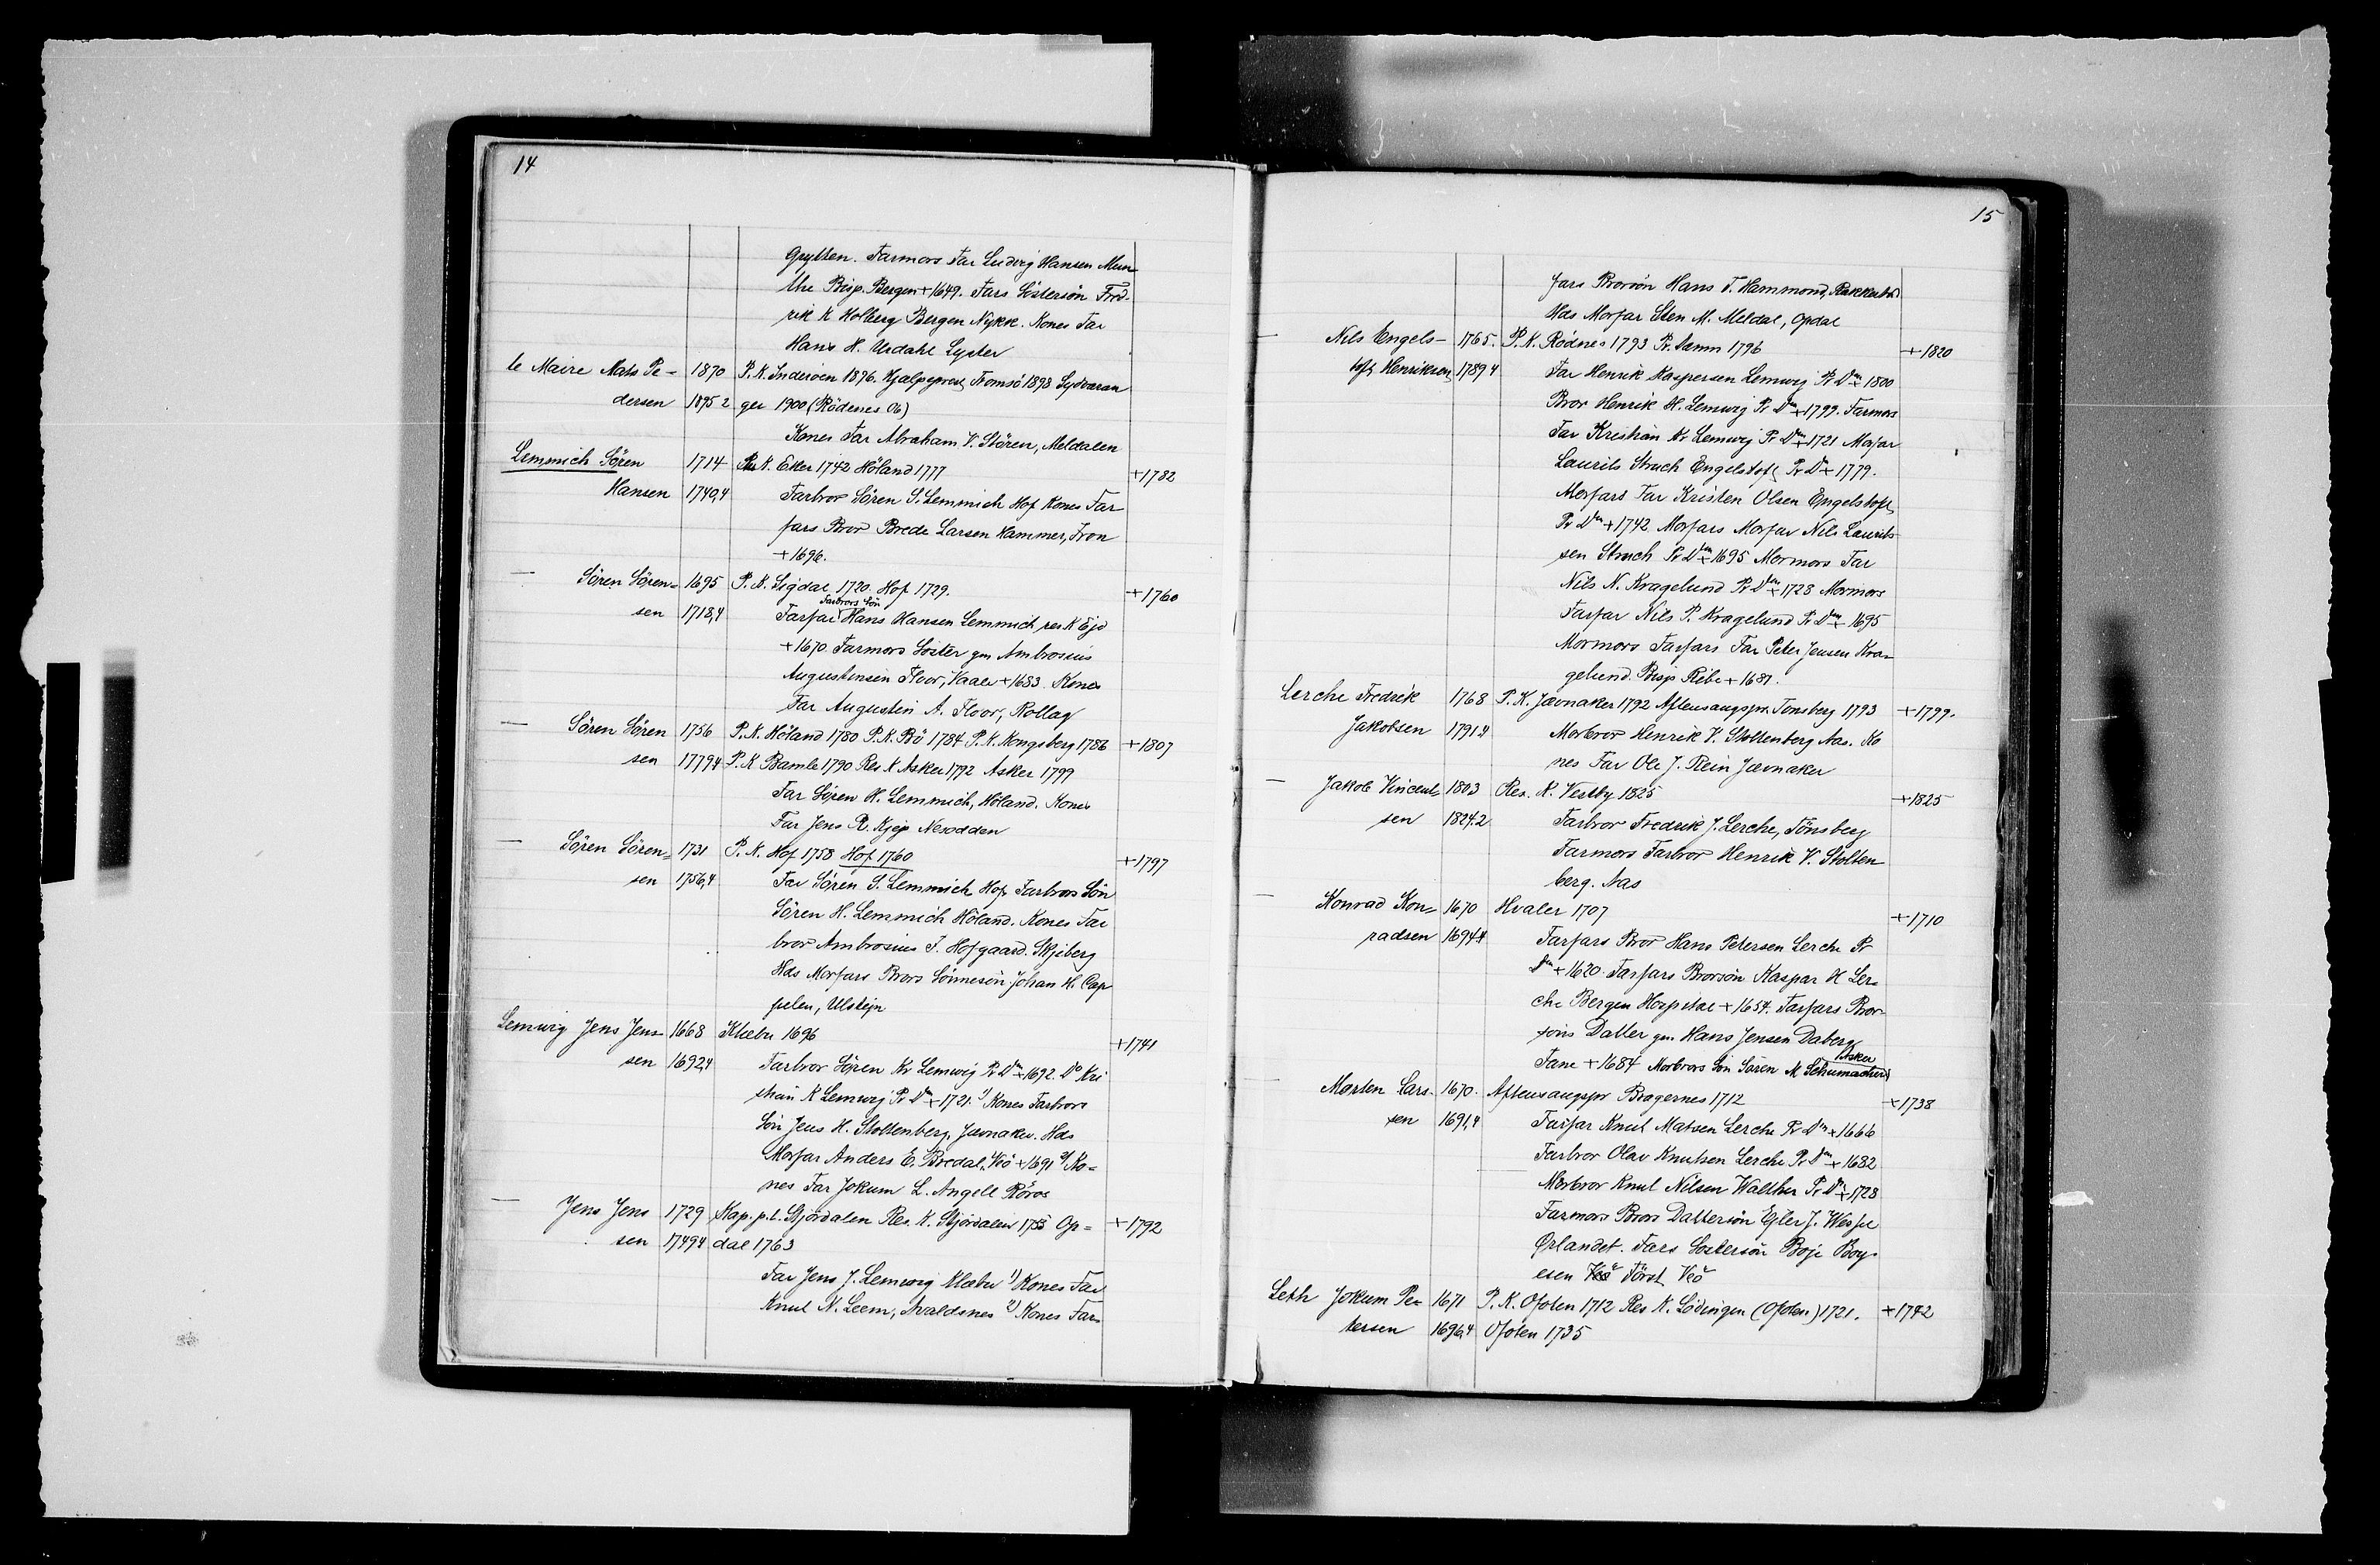 14
Grytten. Farmors Far Ludvig Hansen Mun
the Bisp. Bergen +1649. Fars Söstersön Fred-
rik K Holberg Bergen Nykk. Kones Far
Hans H. Urdahl Lyster
le Maire Mats Pe- 1870 P. K. Inderöen 1896. Hjælpeprest Tromsö 1898 Sydvaran
dersen 1895 2 ger 1900 (Rödenes 06)
Kones Far Abraham V. Stören, Meldalen
Lemmich Sören 1714 Res K. Eker 1742 Höland 1777 +1782
Hansen 1740,4 Farbror Sören S. Lemmich Hof Kones Far
fars Bror Brede Larsen Hammer, Fron
+1696.
— Sören Sören= 1695 P. K. Sigdal 1720. Hof 1729. +1760
Farbrors Sön
sen 1718,4 Farfar Hans Hansen Lemmich res K Ejd
+1670. Farmors Söster gm Ambrosius
Augustinsen Floor, Vaale +1683. Kones
Far Augustin A. Floor, Rollag
— Sören Sören 1756 P. K. Höland 1780 P. K. Bö 1784 P. K. Kongsberg 1786 +1807
sen 1779,4 P. K Bamle 1790 Res K Asker 1792 Asker 1799
Far Sören H. Lemmich, Höland. Kones
Far Jens R. Kjep Nesodden
— Sören Sören= 1731 P. K. Hof 1758 Hof 1760 +1797
sen 1756,4 Far Sören S. Lemmich Hof Farbrors Sön
Sören H. Lemmich Höland. Kones Far
bror Ambrosius F. Hofgaard. Skjeberg
Hds Morfars Brors Sönnesön Johan H. Cap
pelen, Ulstejn
Lemwig Jens Jens- 1668 Klæbu 1696 +1741
sen 1692,4 Farbror Sören Kr Lemwig Pr Dm +1692. Do Kri
stian K Lemwig Pr Dm +1721. 1) Kones Farbrors
Sön Jens H. Stoltenberg, Jævnaker. Hds
Morfar Anders E. Bredal, Veö +1691 2) Ko=
nes Far Jokum L. Angell Röros
— Jens Jens 1729 Kap. p. t. Stjördalen Res. K. Stjördalen 1755 Op= +1792
sen 1749 4 dal 1763
Far Jens J. Lemwig Klæbu 1) Kones Far
Knut N. Leem, Avaldsnes 2) Kones Far=
15
fars Brorsön Hans T. Hammond, Rakkestad
Hds Morfar Sten M. Meldal, Opdal
— Nils Engels- 1765. P. K. Rödnes 1793 Pr. Dann 1796 +1820
toft Henriksen 1789 4 Far Henrik Kaspersen Lemwig Pr Dm + 1800
Bror Henrik H. Lemwig Pr Dm +1799. Farmors
Far Kristian Kr Lemwig Pr Dm +1721 Morfar
Laurits Struch Engelstoft Pr Dm +1779.
Morfars Far Kristen Olsen Engelstoft
Pr Dm +1742 Morfars Morfar Nils Laurits
sen Struch Pr Dm +1695 Mormors Far
Nils N. Kragelund Pr Dm +1728 Mormors
Farfar Nils P. Kragelund Pr Dm + 1695
Mormors Farfars Far Peter Jensen Kra=
gelund. Bisp Ribe +1681.
Lerche Fredrik 1768 P. K. Jævnaker 1792 Aftensangspr. Tonsberg 1793 +1799.
Jakobsen 1791,4 Morbror Henrik V. Stoltenberg Aas. Ko
nes Far Ole J. Rein Jævnaker
— Jakob Vincent- 1803 Res. K. Vestby 1825 +1825
sen 1824.2 Farbror Fredrik J. Lerche, Tönsberg
Farmors Farbror Henrik V. Stolten
berg. Aas
— Konrad Kon= 1670 Hvaler 1707 +1710
radsen 1694,4 Farfars Bror Hans Petersen Lerche Pr
Dm +1620. Farfars Brorsön Kaspar H Ler=
che Bergen Hospital +1654. Farfars Bror-
söns Datter gm. Hans Jensen Daberg
Asker
Tane +1684 Morbrors Sön Sören M Schumacher
— Morten Lars- 1670. Aftensangspr Bragernes 1712 +1738
sen 1691,4 Farfar Knut Matsen Lerche Pr Dm +1666
Farbror Olav Knutsen Lerche Pr Dm +1682
Morbror Knut Nilsen Walther Pr Dm +1728
Farmors Brors Dattersön Ejler J. Wessel
Ørlandet. Fars Söstersön Boje Boy-
esen Veö Först Veö
Leth Jokum Pe= 1671 P. K. Ofoten 1712 Res K. Lödingen (Ofoten) 1721. +1742
tersen 1696,4 Ofoten 1735